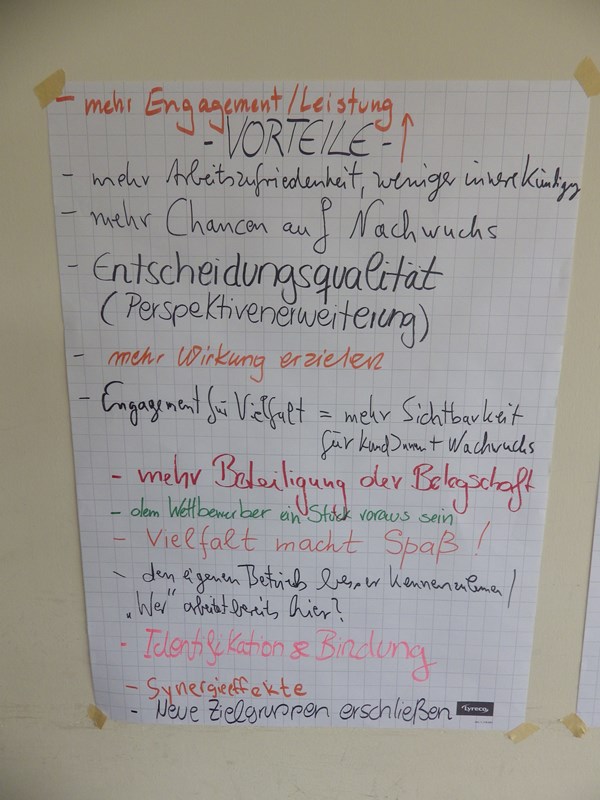 - mehr Engagement/Leistung ↑
- VORTEILE -
- mehr Arbeitszufriedenheit, weniger innere Kündigg
- mehr Chancen auf Nachwuchs
- Entscheidungsqualität
(Perspektivenerweiterung)
- mehr Wirkung erzielen
- Engagement für Vielfalt = mehr Sichtbarkeit
für KundInnen + Nachwuchs
- mehr Beteiligung der Belegschaft
- dem Wettbewerber ein Stück voraus sein
- Vielfalt macht Spaß!
- den eigenen Betrieb besser kennenzulernen/
„Wer" arbeitet bereits hier?
- Identifikation & Bindung
- Synergieeffekte
- Neue Zielgruppen erschließen
Lyreco